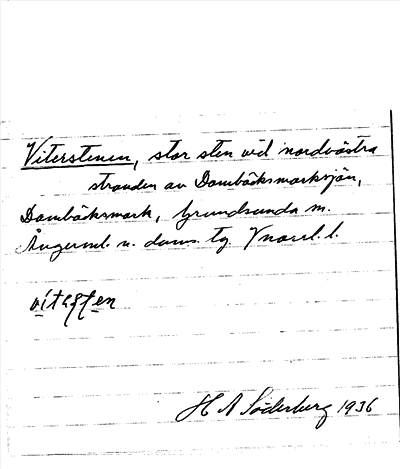 Viterstenen, stor sten vid nordvästra
stranden av Dombäcksmarksjön,
Dombäcksmark, Grundsunda sn.
Ångerml. n. doms. tg V norrl. l.
H A Söderberg 1936